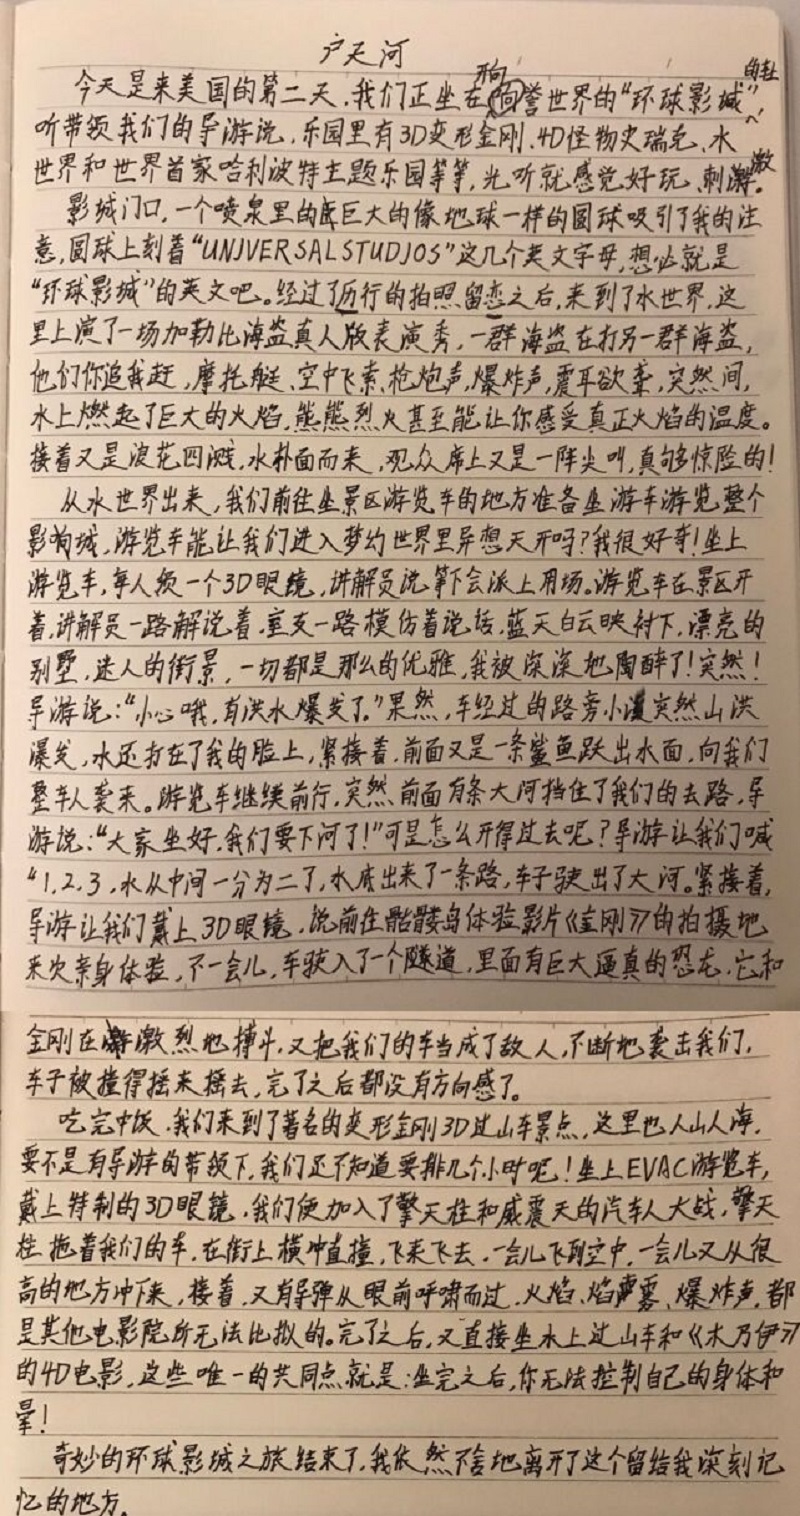 户天河
今天是来美国的第二天,我们正坐在开向誉世界的“环球影城”的车上
听带领我们的导游说,乐园里有3D变形金刚、4D怪物史瑞克、水
世界和世界首家哈利波特主题乐园等等,光听就感觉好玩、刺激。
影城门口,一个喷泉里的巨大的像地球一样的圆球吸引了我的注
意,圆球上刻着“UNIVERSAL STUDIOS”这几个英文字母,想必就是
“环球影城”的英文吧。经过了历行的拍照留恋之后,来到了水世界,这
里上演了一场加勒比海盗真人版表演秀,一群海盗在打另一群海盗,
他们你追我赶,摩托艇、空中飞索、枪炮声,爆炸声,震耳欲聋,突然间,
水上燃起了巨大的火焰,熊熊烈火甚至能让你感受真正火焰的温度。
接着又是浪花四溅,水朴面而来,观众席上又是一阵尖叫,真够惊险的!
从水世界出来,我们前往坐景区游览车的地方准备坐游车游览整个
影城,游览车能让我们进入梦幻世界里异想天开吗?我很好奇!坐上
游览车,每人领一个3D眼镜,讲解员说等下会派上用场。游览车在景区开
着,讲解员一路解说着,一路模仿着说话,蓝天白云映衬下,漂亮的
别墅,迷人的街景,一切都是那么的优雅,我被深深地陶醉了!突然!
导游说:“小心哦,有洪水爆发了。”果然,车经过的路旁小道突然山洪
瀑发,水还打在了我的脸上,紧接着,前面又是一条鲨鱼跃出水面,向我们
整车人袭来。游览车继续前行,突然前面有条大河挡住了我们的去路,导
游说:“大家坐好,我们要下河了!”可是怎么开得过去呢?导游让我们喊
“1,2,3,水从中间一分为二了,水底出来了一条路,车子驶出了大河。紧接着,
导游让我们戴上3D眼镜,说前往骷髅岛体验影片《金刚》的拍摄地
来次亲身体验,不一会儿,车驶入了一个隧道,里面有巨大逼真的恐龙,它和
金刚在激烈地搏斗,又把我们的车当成了敌人,不断地袭击我们,
车子被撞得摇来摇去,完了之后都没有方向感了。
吃完中饭,我们来到了著名的变形金刚3D过山车景点,这里也人山人海,
要不是有导游的带领下,我们还不知道要排几个小时呢!坐上EVAC游览车,
戴上特制的3D眼镜,我们便加入了擎天柱和威震天的汽车人大战,擎天
柱拖着我们的车,在街上横冲直撞,飞来飞去,一会儿飞到空中,一会儿又从很
高的地方冲下来,接着,又有导弹从眼前呼啸而过,火焰、焰雾、爆炸声,都
是其他电影院所无法比拟的。完了之后,又直接坐水上过山车和《木乃伊》
的4D电影,这些唯一的共同点就是:坐完之后,你无法控制自己的身体和
晕!
奇妙的环球影城之旅结束了,我依然不舍地离开了这个留给我深刻记
忆的地方。